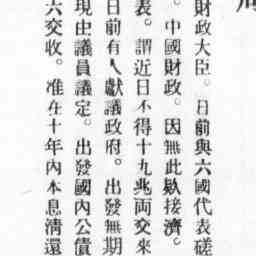 財政大臣。日前與六國代表磋
。中國財政。因無此欵接濟。
表。謂近日不得十九兆両交來
日前有人獻議政府。出發無期
現由議員議定。出發國內公債
六交收。准在十年內本息淸還